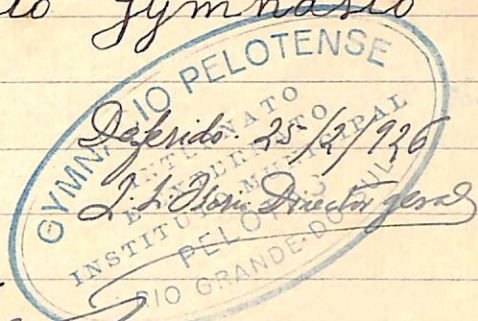 Gymnasio
GYMNASIO PELOTENSE
INTERNATO
E EXTERNATO
INSTITUTO MUNICIPAL
PELOTAS
RIO GRANDE DO SUL
Deferido. 25/2/926
Director geral